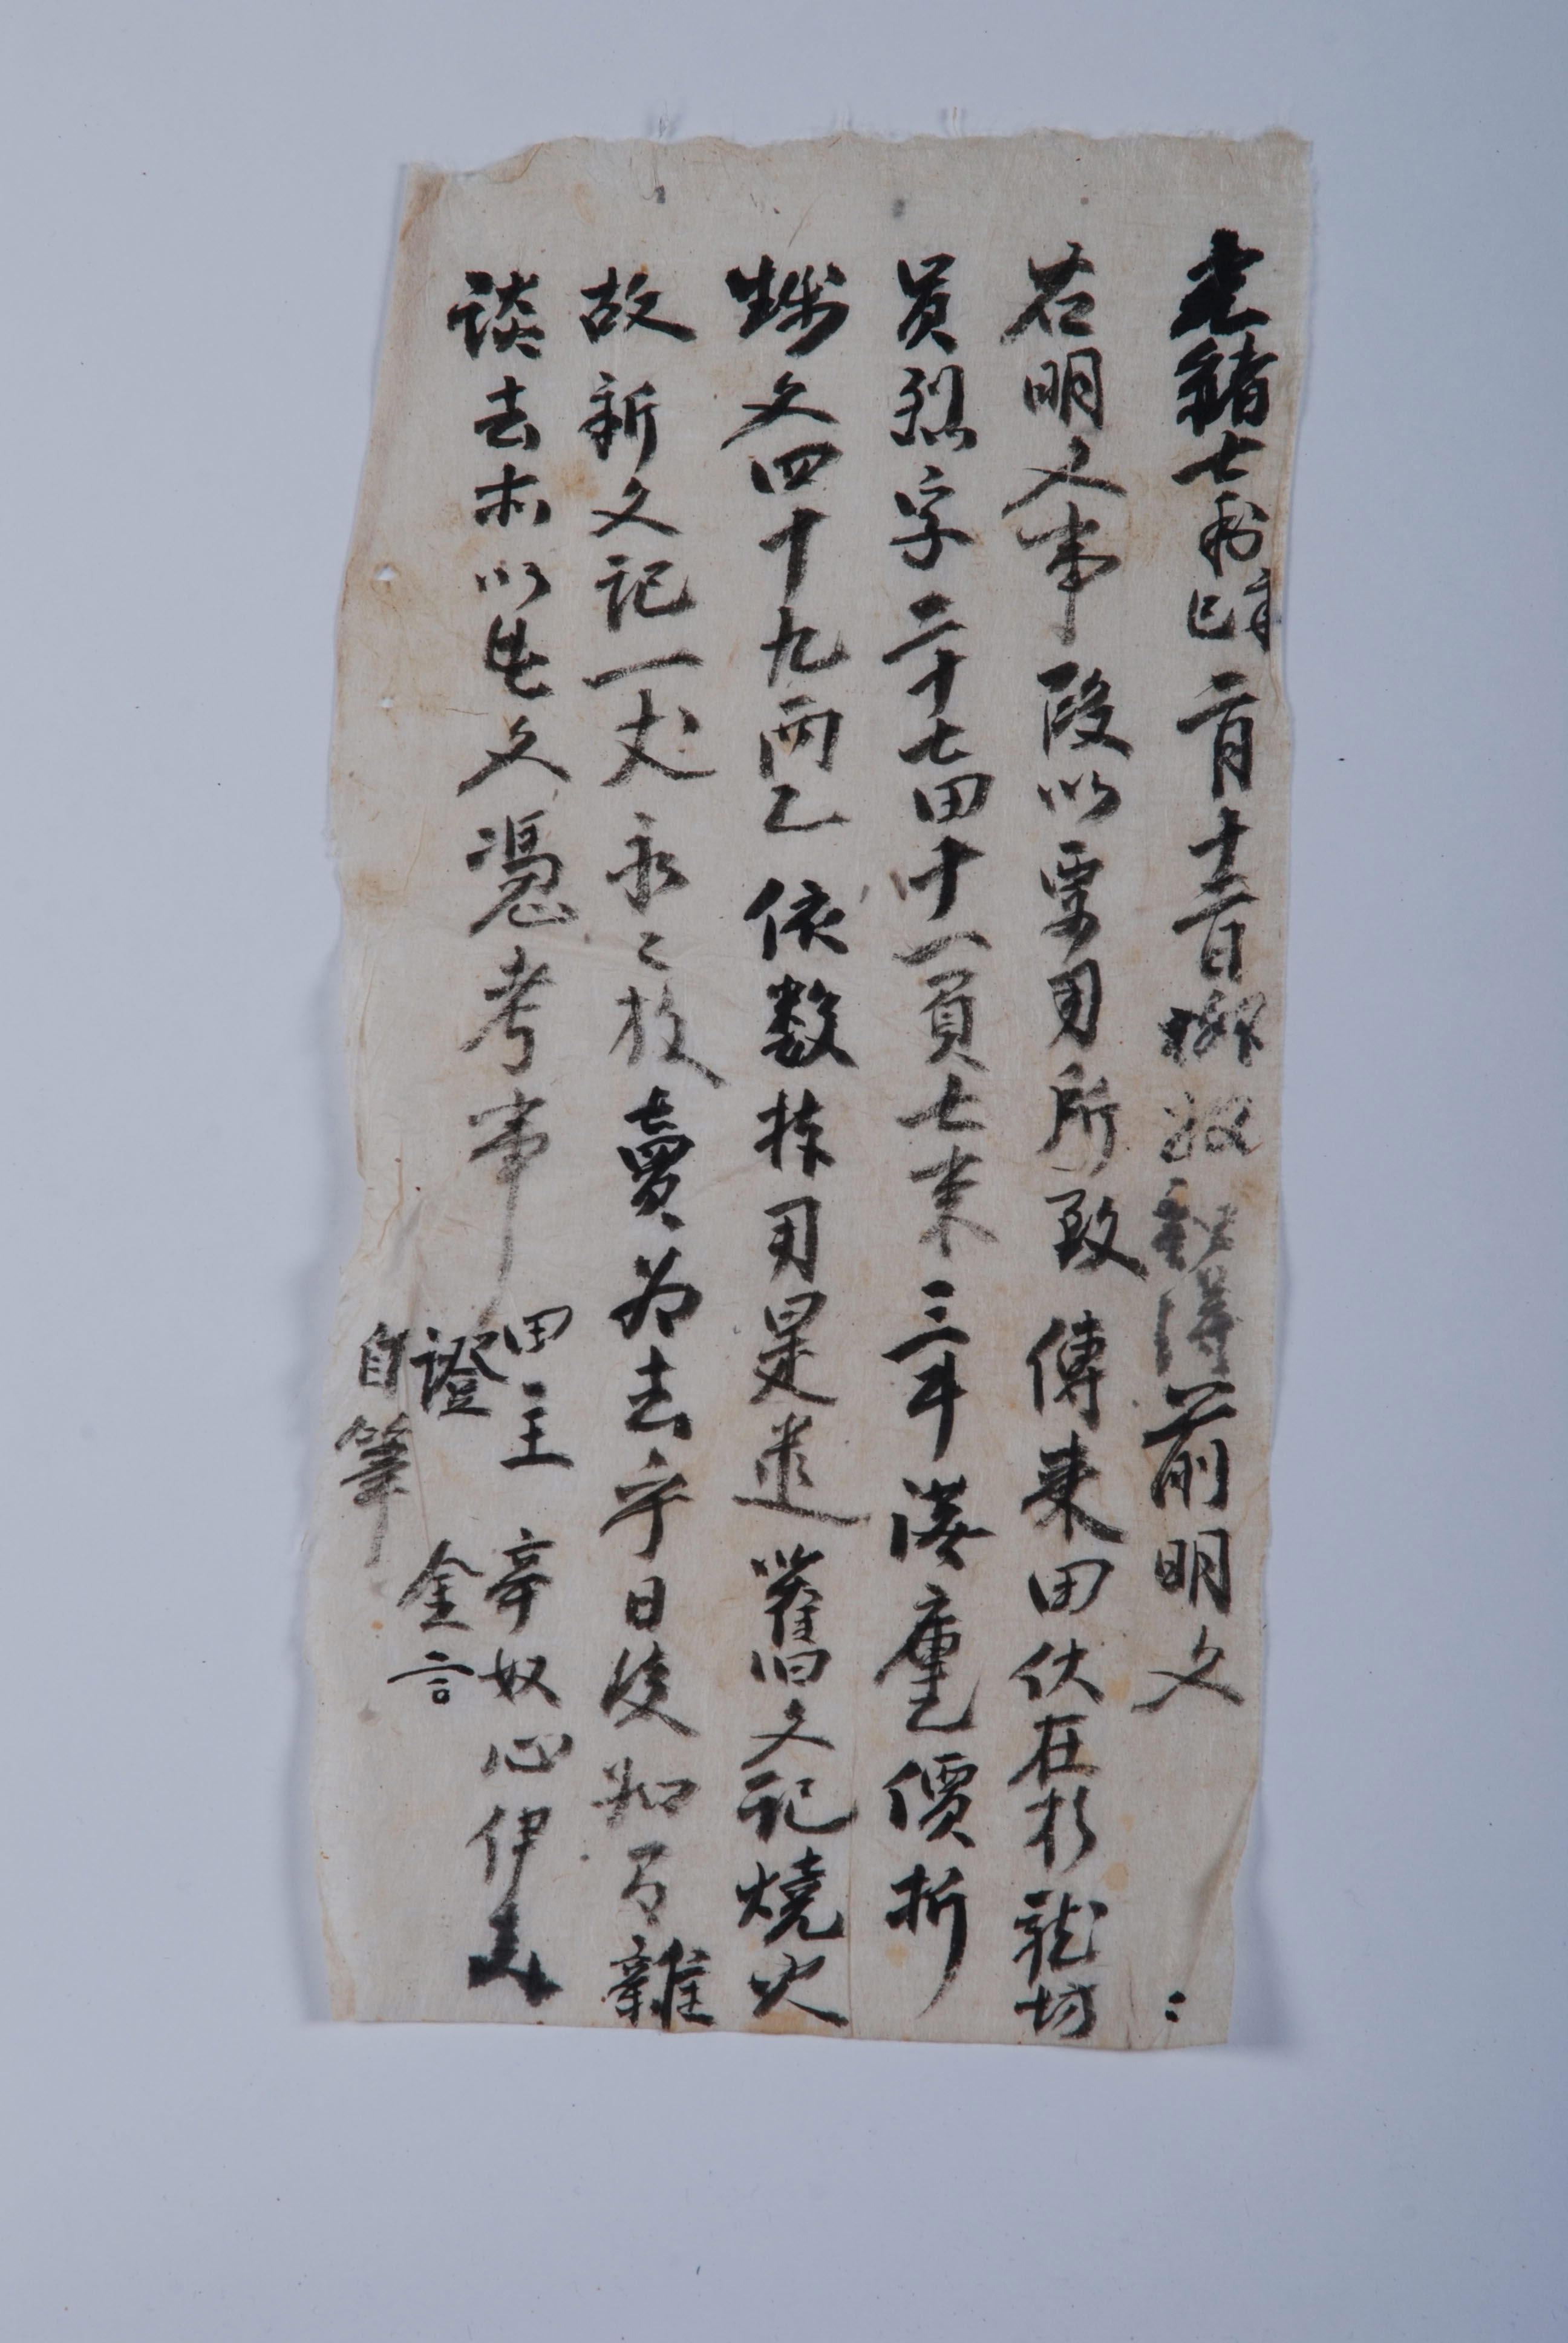 光緒七年辛巳二月十二日柳奴 前明文
右明文事段以要用所致傳來田伏在於 坊
員烈字二十七田十一負七束三斗落庫乙價折
錢文四十九兩乙依數捧用是遣舊文記燒火
故新文記一丈永〻放賣爲去乎日後如有雜
談去等以此文憑考事
田主 辛奴心伊
證 金言
自筆